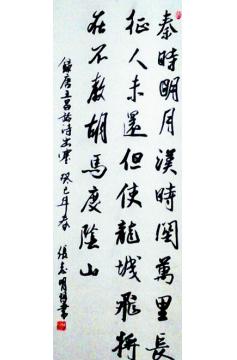 秦時明月漢時関萬里長
征人未還但使龍城飛將
在不教胡馬度陰山
錄唐王昌齡詩出塞 癸巳年春
張志明書